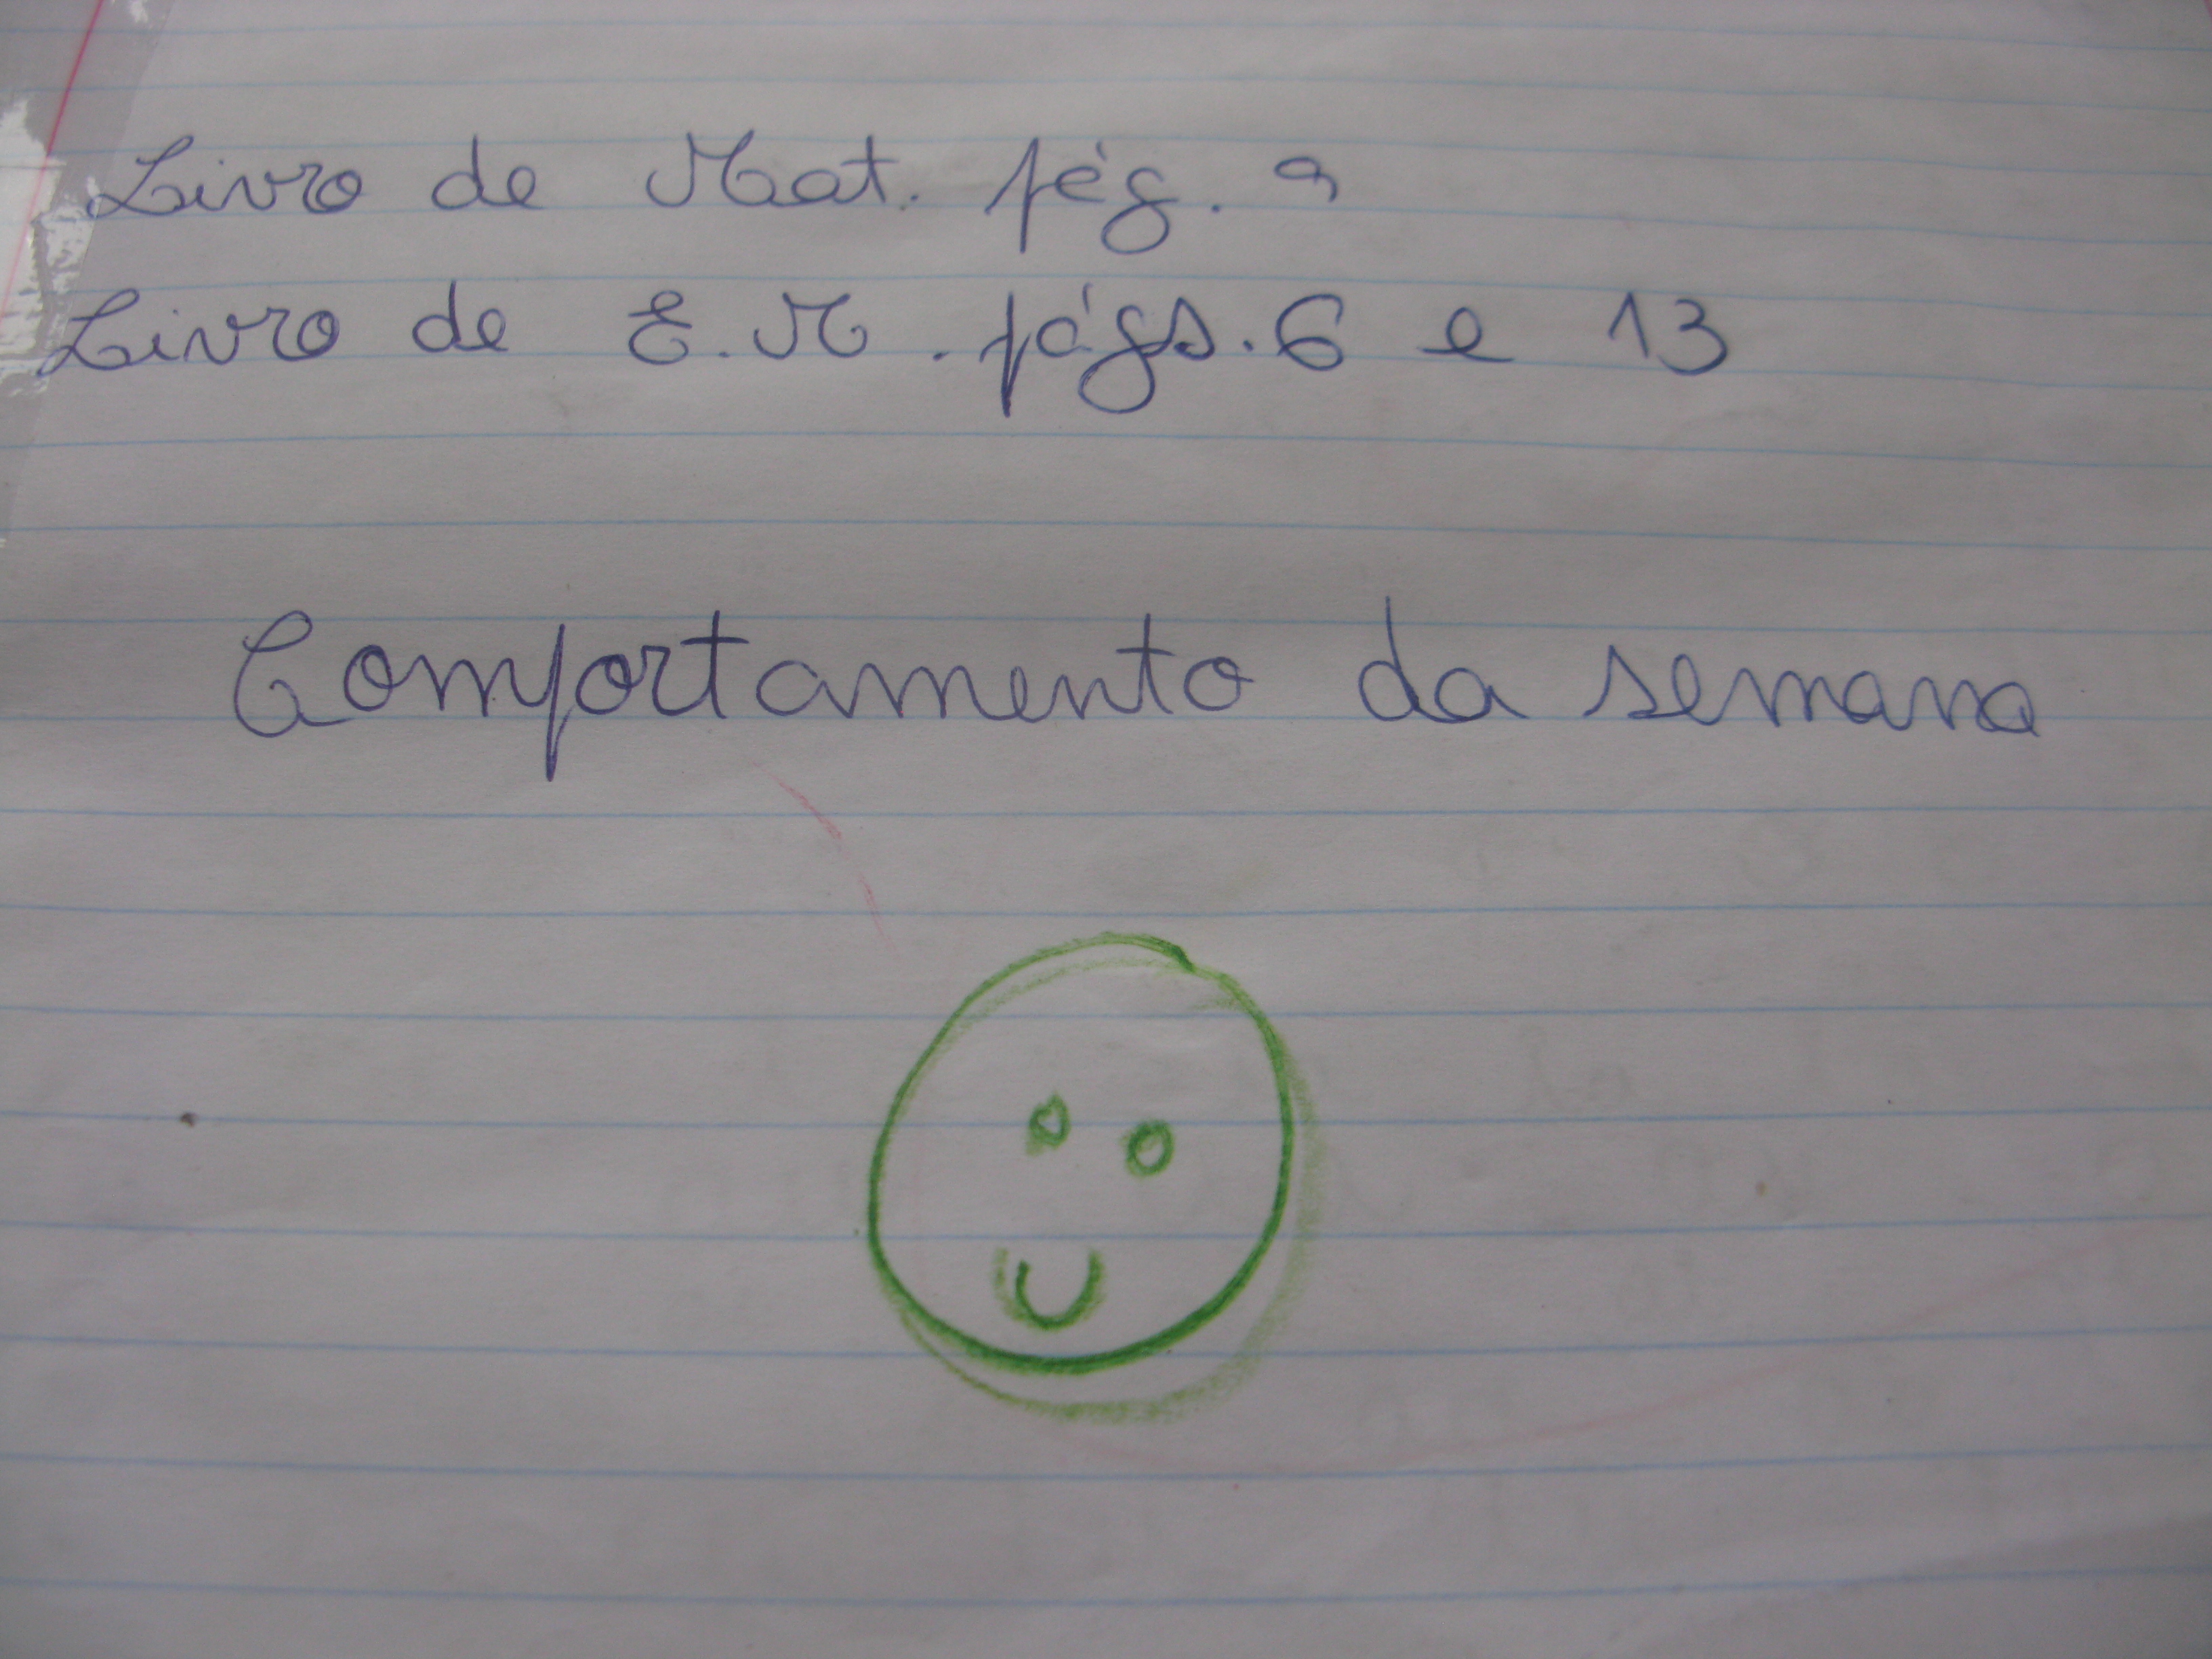 Livro de Mat. pág. 9
Livro de E.M. págs. 6 e 13
Comportamento da semana